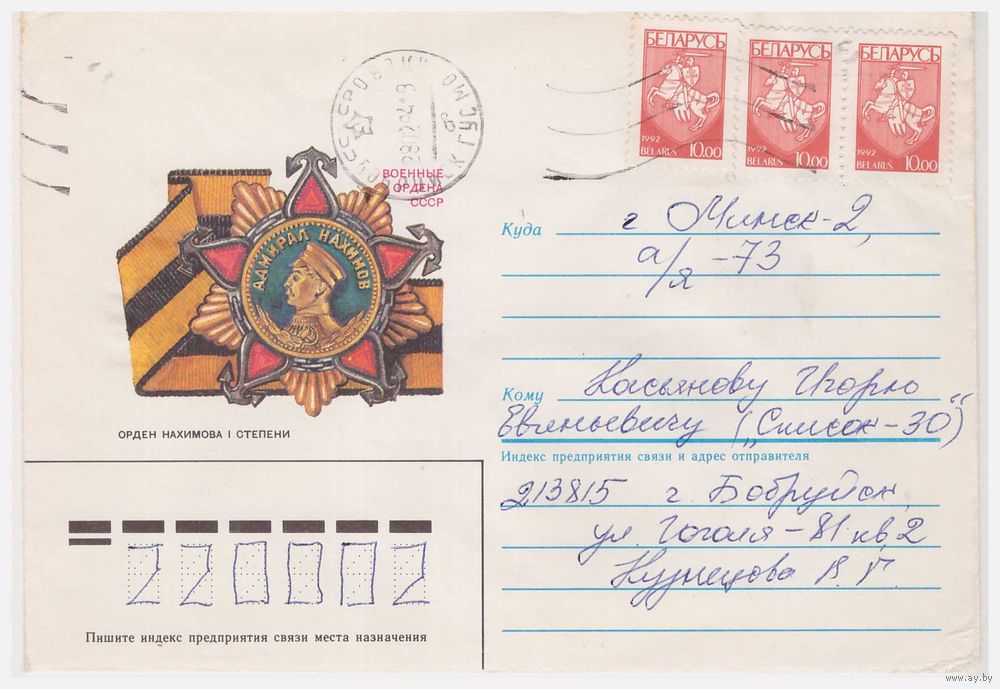 БЕЛАРУСЬ
1992
10.00
BELARUS
БЕЛАРУСЬ
1992
10.00
BELARUS
БЕЛАРУСЬ
1992
10.00
BELARUS
ВОЕННЫЕ
ОРДЕНА
СССР
АДМИРАЛ НАХИМОВ
ОРДЕН НАХИМОВА I СТЕПЕНИ
Куда г. Минск-2,
а/я -73
Кому Касьянову Игорю
Евгеньевичу („Список-30“)
Индекс предприятия связи и адрес отправителя
213815 г. Бобруйск,
ул. Гоголя-81 кв 2
Кузнецова В. Г.
220002
Пишите индекс предприятия связи места назначения
www.ay.by